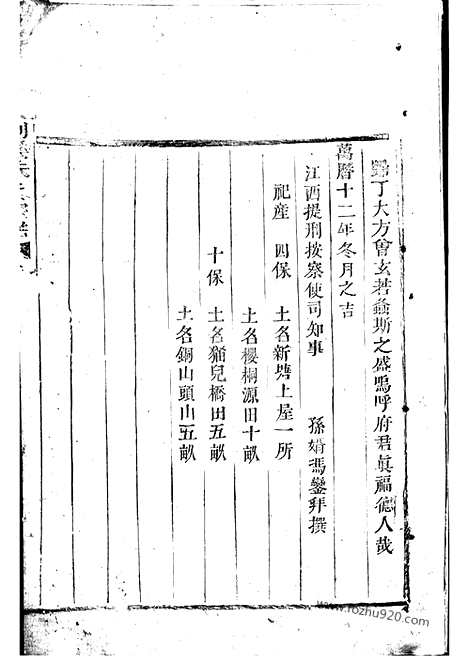 丁大方會玄若螽斯之盛嗚呼府君眞福德人哉
萬曆十二年冬月之吉
江西提刑按察使司知事 孫婿馮鑾拜撰
祀産 四保 土名新塘上屋一所
土名櫻桐源田十畝
十保 土名猫兒橋田五畝
土名銅山頭山五畝
www.fozhu920.com